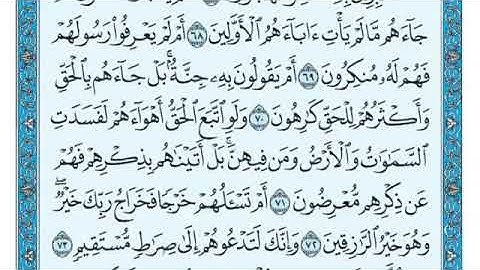 جَآءَهُم مَّا لَمْ يَأْتِ ءَابَآءَهُمُ ٱلْأَوَّلِينَ ٦٨ أَمْ لَمْ يَعْرِفُوا۟ رَسُولَهُمْ
فَهُمْ لَهُۥ مُنكِرُونَ ٦٩ أَمْ يَقُولُونَ بِهِۦ جِنَّةٌۢ ۚ بَلْ جَآءَهُم بِٱلْحَقِّ
وَأَكْثَرُهُمْ لِلْحَقِّ كَٰرِهُونَ ٧٠ وَلَوِ ٱتَّبَعَ ٱلْحَقُّ أَهْوَآءَهُمْ لَفَسَدَتِ
ٱلسَّمَٰوَٰتُ وَٱلْأَرْضُ وَمَن فِيهِنَّ ۚ بَلْ أَتَيْنَٰهُم بِذِكْرِهِمْ فَهُمْ
عَن ذِكْرِهِم مُّعْرِضُونَ ٧١ أَمْ تَسْـَٔلُهُمْ خَرْجًا فَخَرَاجُ رَبِّكَ خَيْرٌ ۖ
وَهُوَ خَيْرُ ٱلرَّٰزِقِينَ ٧٢ وَإِنَّكَ لَتَدْعُوهُمْ إِلَىٰ صِرَٰطٍ مُّسْتَقِيمٍ ٧٣